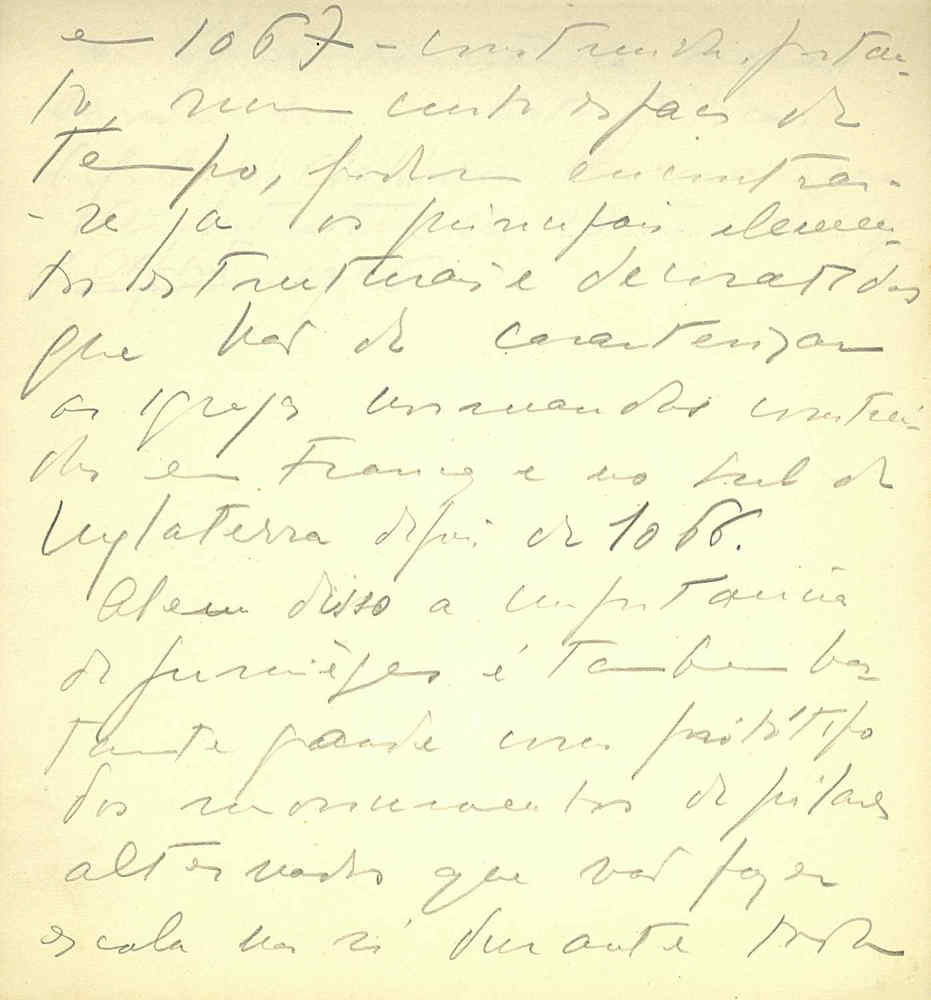 em 1067 - construida, portan-
to, num curto espaço de
tempo, podem encontrar-
-se já os principais elemen-
tos estruturais e decorativos
que hão de caracterizar
as igrejas normandas construi-
das em França e no sul de
Inglaterra depois de 1066.
Alem disso a importancia
de Jumièges é tambem bas-
tante grande como protótipo
dos monumentos de pilares
alternados que vão fazer
escola não só durante toda